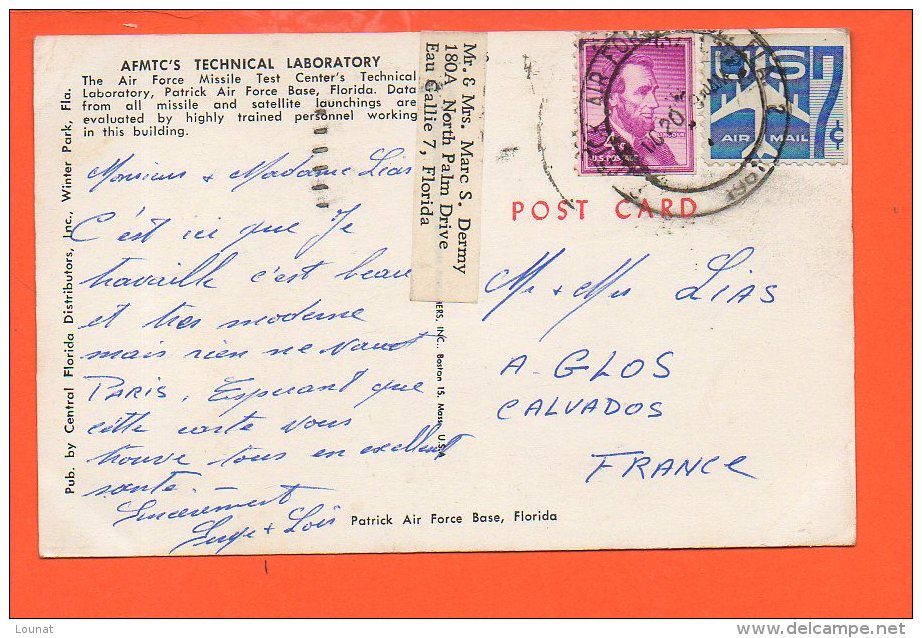 AFMTC'S TECHNICAL LABORATORY
The Air Force Missile Test Center's Technical
Laboratory, Patrick Air Force Base, Florida. Data
from all missile and satellite launchings are
evaluated by highly trained personnel working
in this building.
Monsieur + Madame Lias
C'est ici que Je
travaille c'est beau
et tres moderne
mais rien ne vaut
PARIS. Esperant que
cette carte vous
trouve tous en excellent
santé. —
Sincerement
+ Loïs
Pub. by Central Florida Distributors, Inc., Winter Park, Fla.
Mr. & Mrs. Marc S. Dermy
180A North Palm Drive
Eau Gallie 7, Florida
ERS, INC., Boston 15, Mass. U.S.A.
4¢
LINCOLN
U.S. POSTAGE
US 7¢
AIR MAIL
AIR FORCE
POST CARD
Mr + Mrs LIAS
A - GLOS
CALVADOS
FRANCE
Patrick Air Force Base, Florida
Lounat
www.delcampe.net